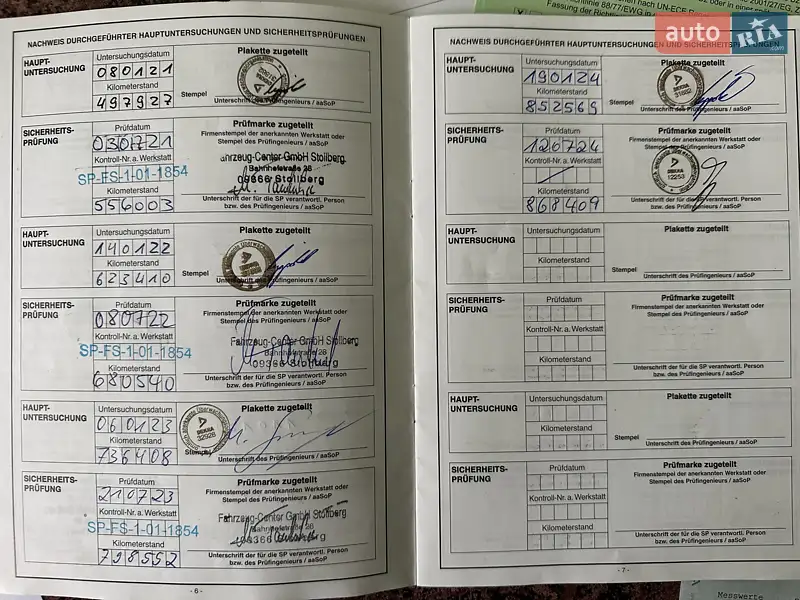 nachten nach UN-ECE
Fassung der Richtlinie 88/77/EWG
2001/27/EG,
auto RIA
.com
NACHWEIS DURCHGEFÜHRTER HAUPTUNTERSUCHUNGEN UND SICHERHEITSPRÜFUNGEN
HAUPT-
UNTERSUCHUNG
Untersuchungsdatum
080121
Kilometerstand
497927
Plakette zugeteilt
Stempel
Unterschrift des Prüfingenieurs / aaSoP
SICHERHEITS-
PRÜFUNG
Prüfdatum
030721
Kontroll-Nr. a. Werkstatt
SP-FS-1-01-1854
Kilometerstand
556003
Prüfmarke zugeteilt
Firmenstempel der anerkannten Werkstatt oder
Stempel des Prüfingenieurs / aaSoP
Fahrzeug-Center GmbH Stollberg
Bahnhofstraße 2B
09366 Stollberg
Unterschrift der für die SP verantwortl. Person
bzw. des Prüfingenieurs / aaSoP
HAUPT-
UNTERSUCHUNG
Untersuchungsdatum
140122
Kilometerstand
623410
Plakette zugeteilt
Stempel
Unterschrift des Prüfingenieurs / aaSoP
SICHERHEITS-
PRÜFUNG
Prüfdatum
080722
Kontroll-Nr. a. Werkstatt
SP-FS-1-01-1854
Kilometerstand
680540
Prüfmarke zugeteilt
Firmenstempel der anerkannten Werkstatt oder
Stempel des Prüfingenieurs / aaSoP
Fahrzeug-Center GmbH Stollberg
Bahnhofstraße 2B
09366 Stollberg
Unterschrift der für die SP verantwortl. Person
bzw. des Prüfingenieurs / aaSoP
HAUPT-
UNTERSUCHUNG
Untersuchungsdatum
060123
Kilometerstand
736408
Plakette zugeteilt
DEKRA
32928
Stempel
Unterschrift des Prüfingenieurs / aaSoP
SICHERHEITS-
PRÜFUNG
Prüfdatum
210723
Kontroll-Nr. a. Werkstatt
SP-FS-1-01-1854
Kilometerstand
798552
Prüfmarke zugeteilt
Firmenstempel der anerkannten Werkstatt oder
Stempel des Prüfingenieurs / aaSoP
Fahrzeug-Center GmbH Stollberg
Bahnhofstraße 2B
09366 Stollberg
Unterschrift der für die SP verantwortl. Person
bzw. des Prüfingenieurs / aaSoP
- 6 -
NACHWEIS DURCHGEFÜHRTER HAUPTUNTERSUCHUNGEN UND SICHERHEITSPRÜFUNGEN
HAUPT-
UNTERSUCHUNG
Untersuchungsdatum
190124
Kilometerstand
852569
Plakette zugeteilt
Stempel
Unterschrift des Prüfingenieurs / aaSoP
SICHERHEITS-
PRÜFUNG
Prüfdatum
120724
Kontroll-Nr. a. Werkstatt
Kilometerstand
868409
Prüfmarke zugeteilt
Firmenstempel der anerkannten Werkstatt oder
Stempel des Prüfingenieurs / aaSoP
DEKRA
12253
Unterschrift der für die SP verantwortl. Person
bzw. des Prüfingenieurs / aaSoP
HAUPT-
UNTERSUCHUNG
Untersuchungsdatum
Kilometerstand
Plakette zugeteilt
Stempel
Unterschrift des Prüfingenieurs / aaSoP
SICHERHEITS-
PRÜFUNG
Prüfdatum
Kontroll-Nr. a. Werkstatt
Kilometerstand
Prüfmarke zugeteilt
Firmenstempel der anerkannten Werkstatt oder
Stempel des Prüfingenieurs / aaSoP
Unterschrift der für die SP verantwortl. Person
bzw. des Prüfingenieurs / aaSoP
HAUPT-
UNTERSUCHUNG
Untersuchungsdatum
Kilometerstand
Plakette zugeteilt
Stempel
Unterschrift des Prüfingenieurs / aaSoP
SICHERHEITS-
PRÜFUNG
Prüfdatum
Kontroll-Nr. a. Werkstatt
Kilometerstand
Prüfmarke zugeteilt
Firmenstempel der anerkannten Werkstatt oder
Stempel des Prüfingenieurs / aaSoP
Unterschrift der für die SP verantwortl. Person
bzw. des Prüfingenieurs / aaSoP
- 7 -
Messwerte